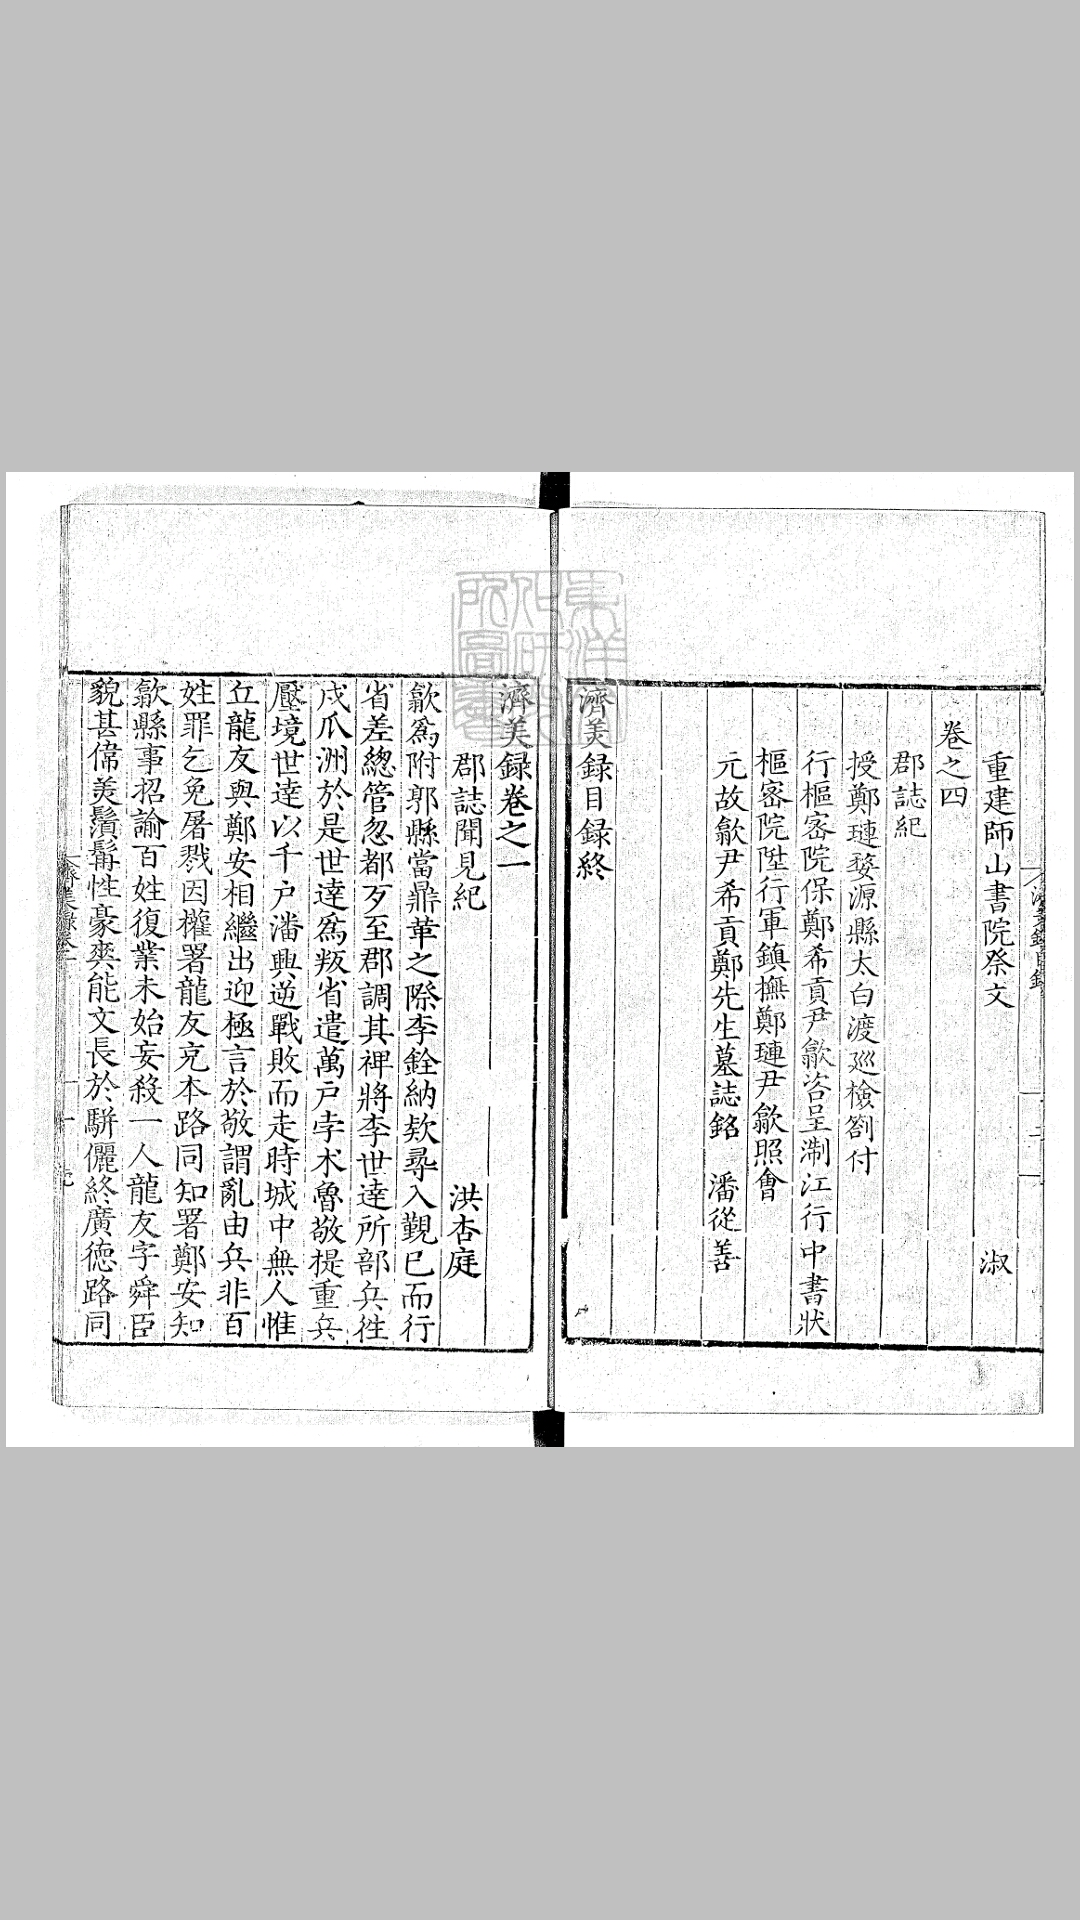 重建師山書院祭文 淑
卷之四
郡誌紀
授鄭璉婺源縣太白渡廵檢劄付
行樞密院保鄭希貢尹歙咨呈淛江行中書狀
樞密院陞行軍鎮撫鄭璉尹歙照會
元故歙尹希貢鄭先生墓誌銘 潘從善
濟美録目録終
濟美録卷之一
郡誌聞見紀 洪杏庭
歙爲附郭縣當鼎革之際李銓納欵尋入覲已而行
省差總管忽都歹至郡調其裨將李世逹所部兵徃
戍瓜洲於是世逹爲叛省遣萬戸孛术魯敬提重兵
壓境世逹以千户潘興逆戰敗而走時城中無人惟
丘龍友與鄭安相繼出迎極言於敬謂亂由兵非百
姓罪乞免屠戮因權署龍友充本路同知署鄭安知
歙縣事招諭百姓復業未始妄殺一人龍友字舜臣
貌甚偉美鬚髯性豪爽能文長於駢儷終廣德路同